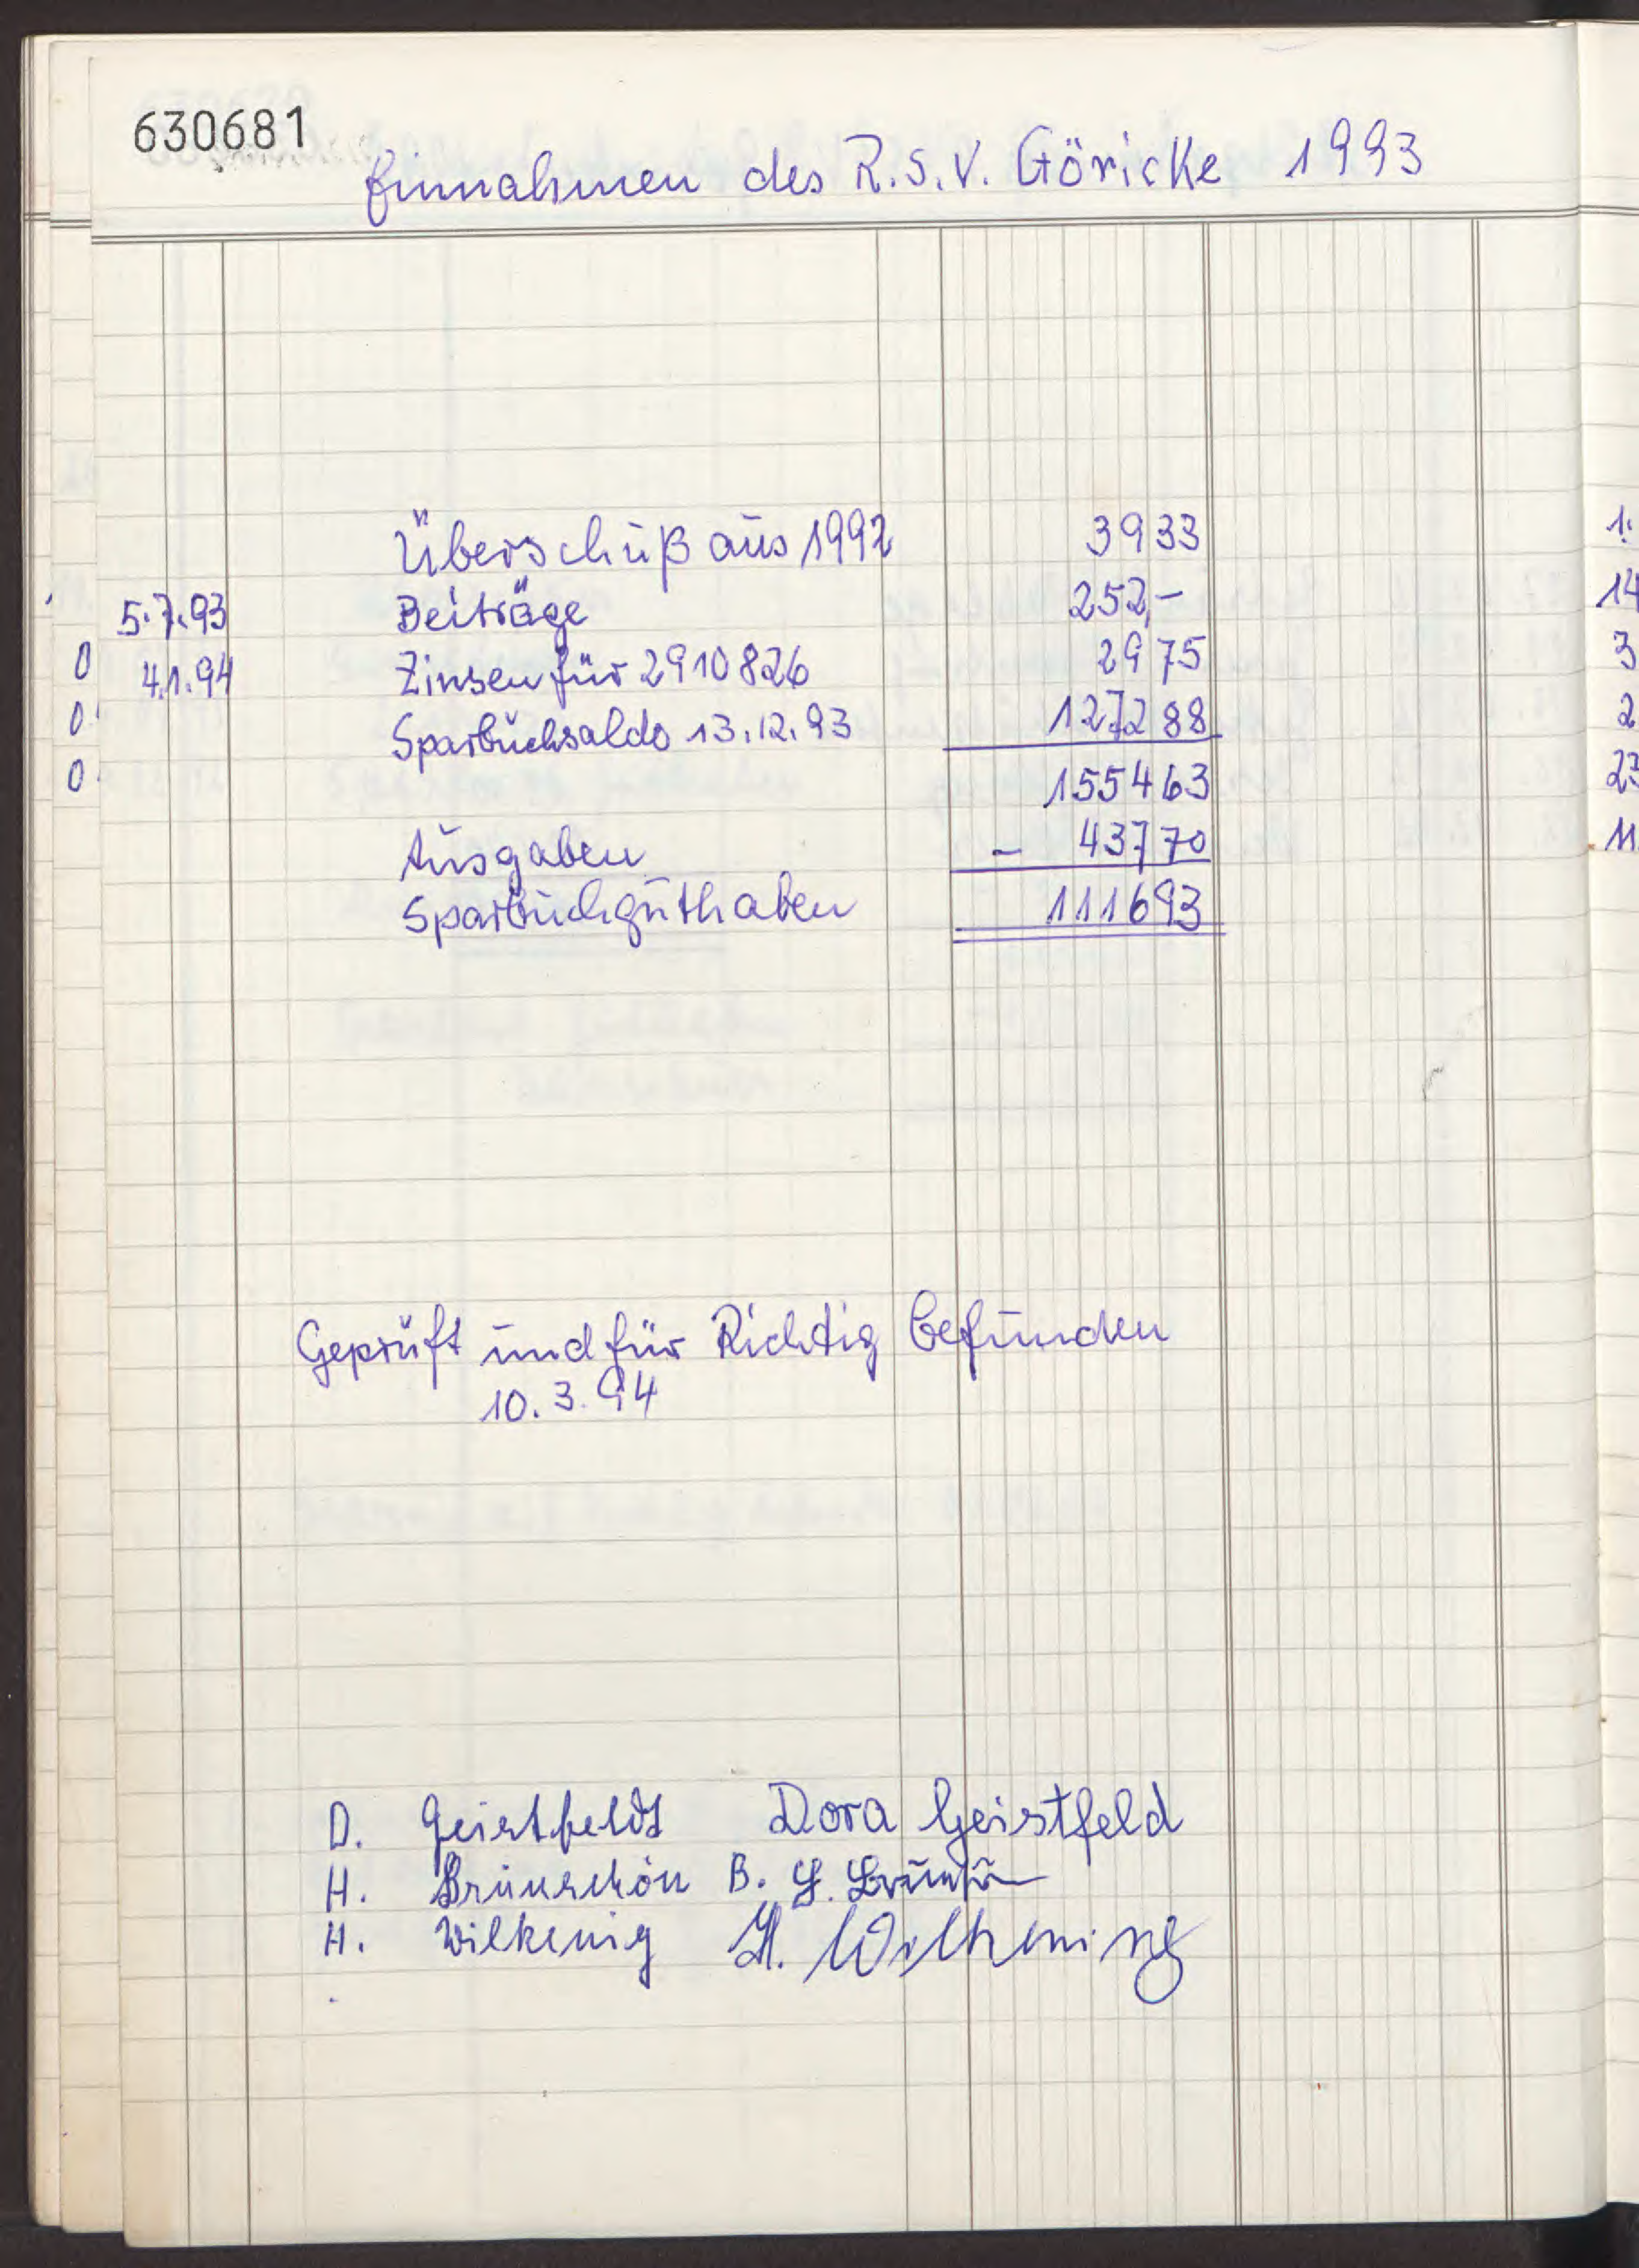 630681
Einnahmen des R.S.V. Göricke 1993
Überschuß aus 1992 3933
5.7.93 Beiträge 252,-
4.1.94 Zinsen für 2910826 2975
Sparbuchsaldo 13.12.93 127288
155463
Ausgaben - 43770
Sparbuchguthaben 111693
Geprüft und für Richtig befunden
10.3.94
D. Geistfeldt Dora Geistfeld
H. Brünschön B. H.
H. Wilkenig H. Wilkening